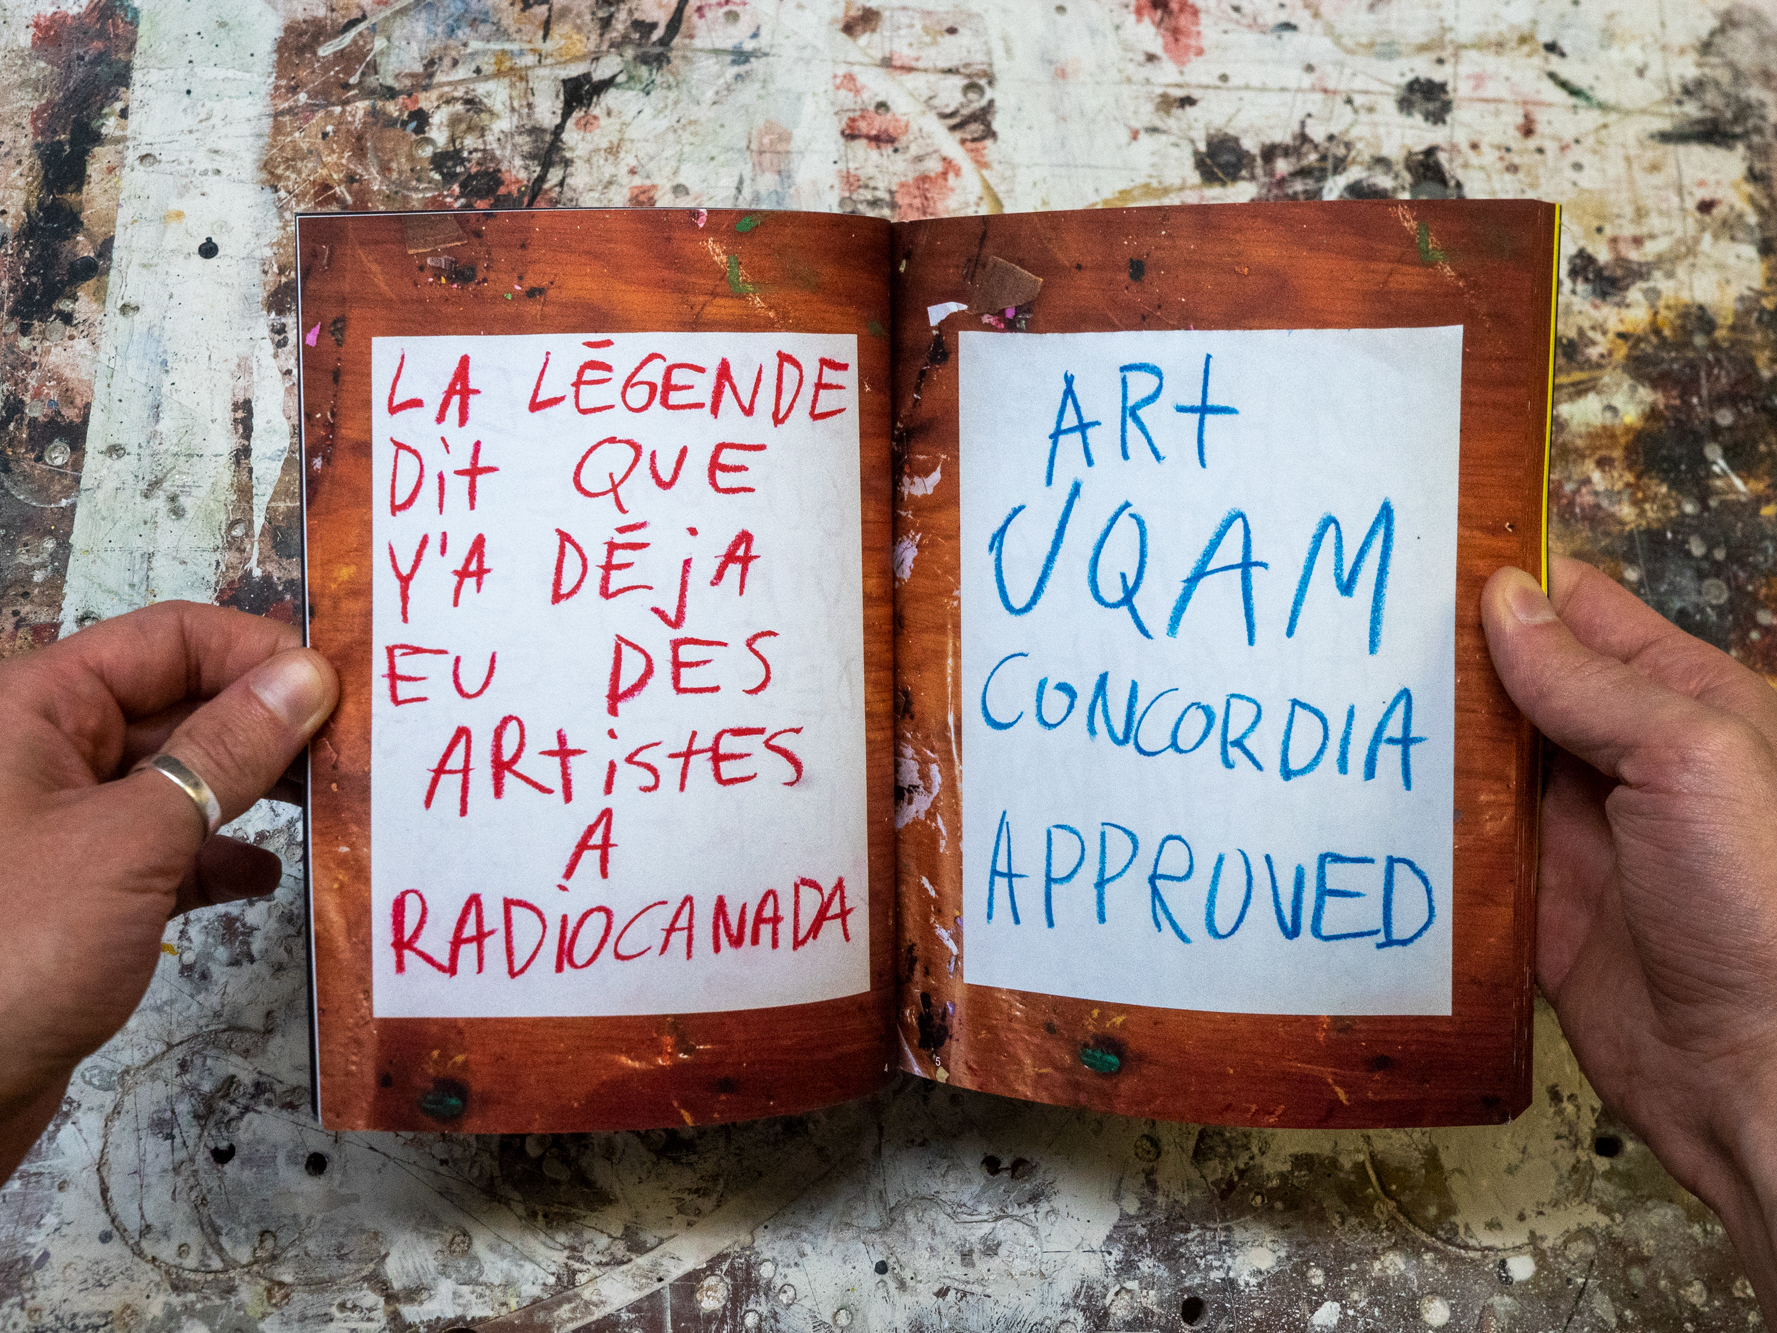 LA LÉGENDE
Dit QUE
Y'A DÉjA
EU DES
ARtistES
A
RADiOCANADA
4
ARt
UQAM
CONCORDIA
APPROVED
5